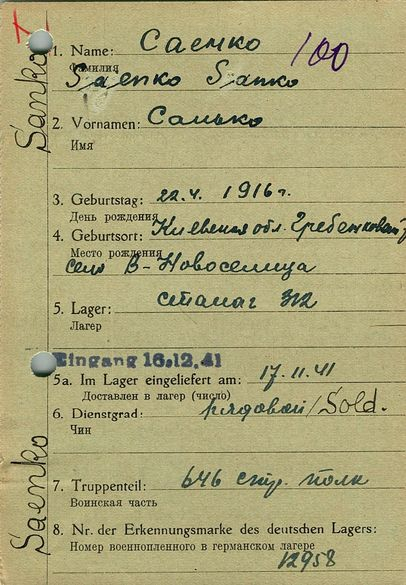 1. Name: Саенко 100
Фамилия
Saenko Sanko
Sanko
2. Vornamen: Санько
Имя
3. Geburtstag: 22.4. 1916 г.
День рождения
4. Geburtsort: Киевская обл.
Место рождения
село В-Новоселица
5. Lager: сталаг 312
Лагер
Eingang 16.12.41
5a. Im Lager eingeliefert am: 17.11.41
Доставлен в лагер (число)
6. Dienstgrad: рядовой/Sold.
Чин
Saenko
7. Truppenteil: 646 стр. полк
Воинская часть
8. Nr. der Erkennungsmarke des deutschen Lagers:
Номер военнопленного в германском лагере
12958